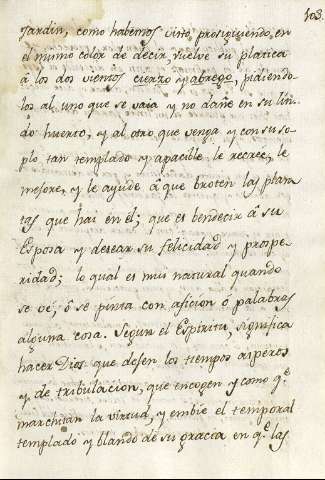 103.
Jardin, como habemos visto, prosiguiendo, en
el mismo color de decir, vuelve su platica
á los dos vientos cierzo y abrego, pidiendo-
los al uno que se vaia y no dañe en su lin-
do huerto, y al otro que venga y con su so-
plo tan templado y apacible le recree, le
mejore, y le ayude á que broten las plan-
tas que hai en el; que es bendecir á su
Esposa y desear su felicidad y prospe-
ridad; lo qual es mui natural quando
se vé, ó se pinta con aficion ó palabras
alguna cosa. Segun el Espiritu, significa
hacer Dios que desen los tiempos asperos
y de tribulacion, que encogen y como q.e
marchitan la virtud, y embie el temporal
templado y blando de su gracia en q.e las